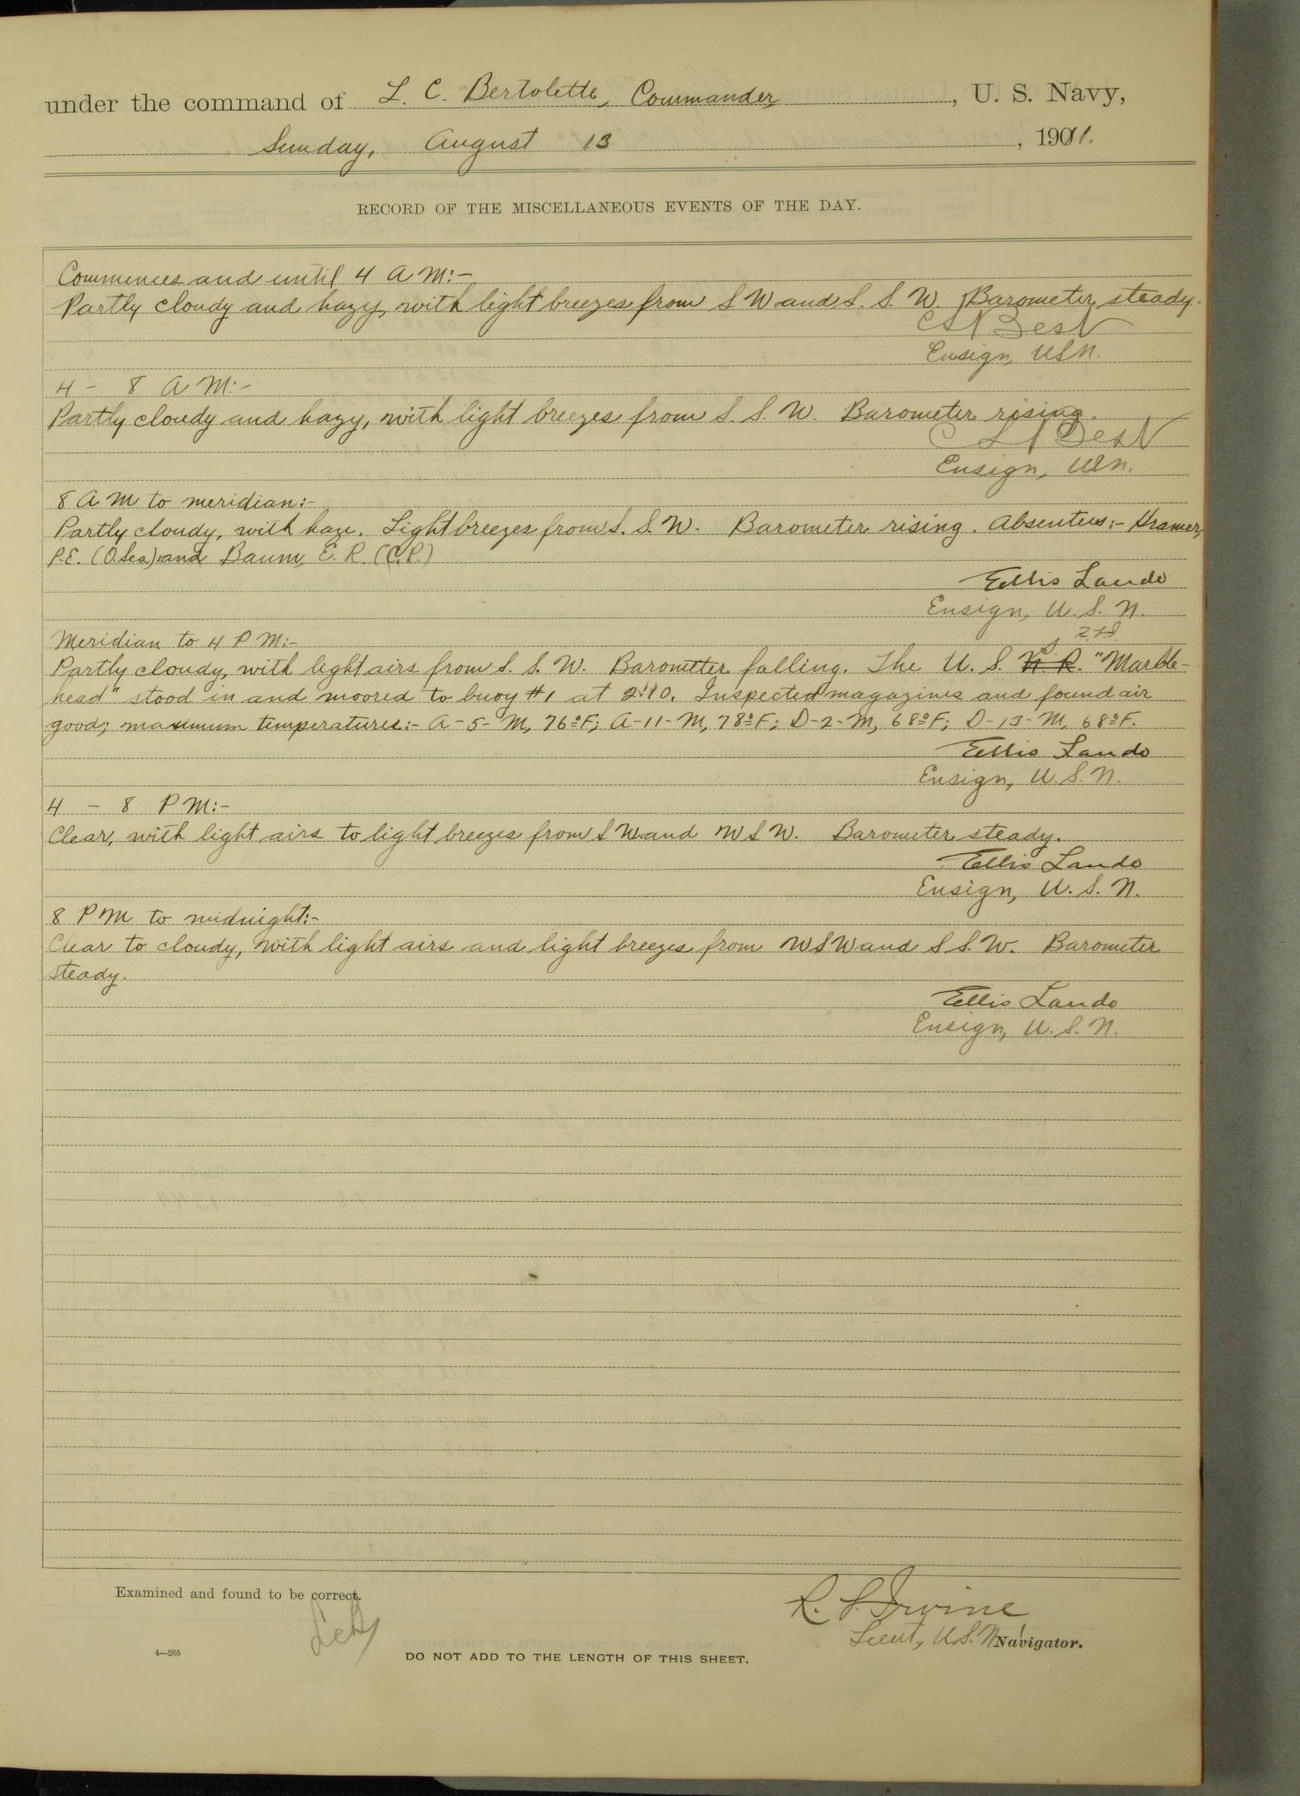 under the command of L. C. Bertolette, Commander, U. S. Navy,
Sunday, August 13, 1911.
RECORD OF THE MISCELLANEOUS EVENTS OF THE DAY.
Commences and until 4 A M:-
Partly cloudy and hazy, with light breezes from S W and S. S. W. Barometer steady.
Best
Ensign, USN.
4 - 8 A M:-
Partly cloudy and hazy, with light breezes from S. S. W. Barometer rising.
Best
Ensign, USN.
8 A M to meridian:-
Partly cloudy, with haze. Light breezes from S. S. W. Barometer rising. Absentees:- Kramer,
P.E. (O.Sea) and Baum, E. R. (C.P.)
Ellis Lando
Ensign, U. S. N.
Meridian to 4 P M:-
Partly cloudy, with light airs from S. S. W. Barometer falling. The U. S. N. R. "Marble-
head" stood in and moored to buoy #1 at 2:10. Inspected magazines and found air
good; maximum temperatures:- A-5-M, 76°F; A-11-M, 78°F; D-2-M, 68°F; D-13-M, 68°F.
Ellis Lando
Ensign, U. S. N.
4 - 8 P M:-
Clear, with light airs to light breezes from S W and W S W. Barometer steady.
Ellis Lando
Ensign, U. S. N.
8 P M to midnight:-
Clear to cloudy, with light airs and light breezes from W S W and S S. W. Barometer
steady.
Ellis Lando
Ensign, U. S. N.
Examined and found to be correct.
LCB
R. S. Irvine
Lieut, U.S.N. Navigator.
4—265
DO NOT ADD TO THE LENGTH OF THIS SHEET.